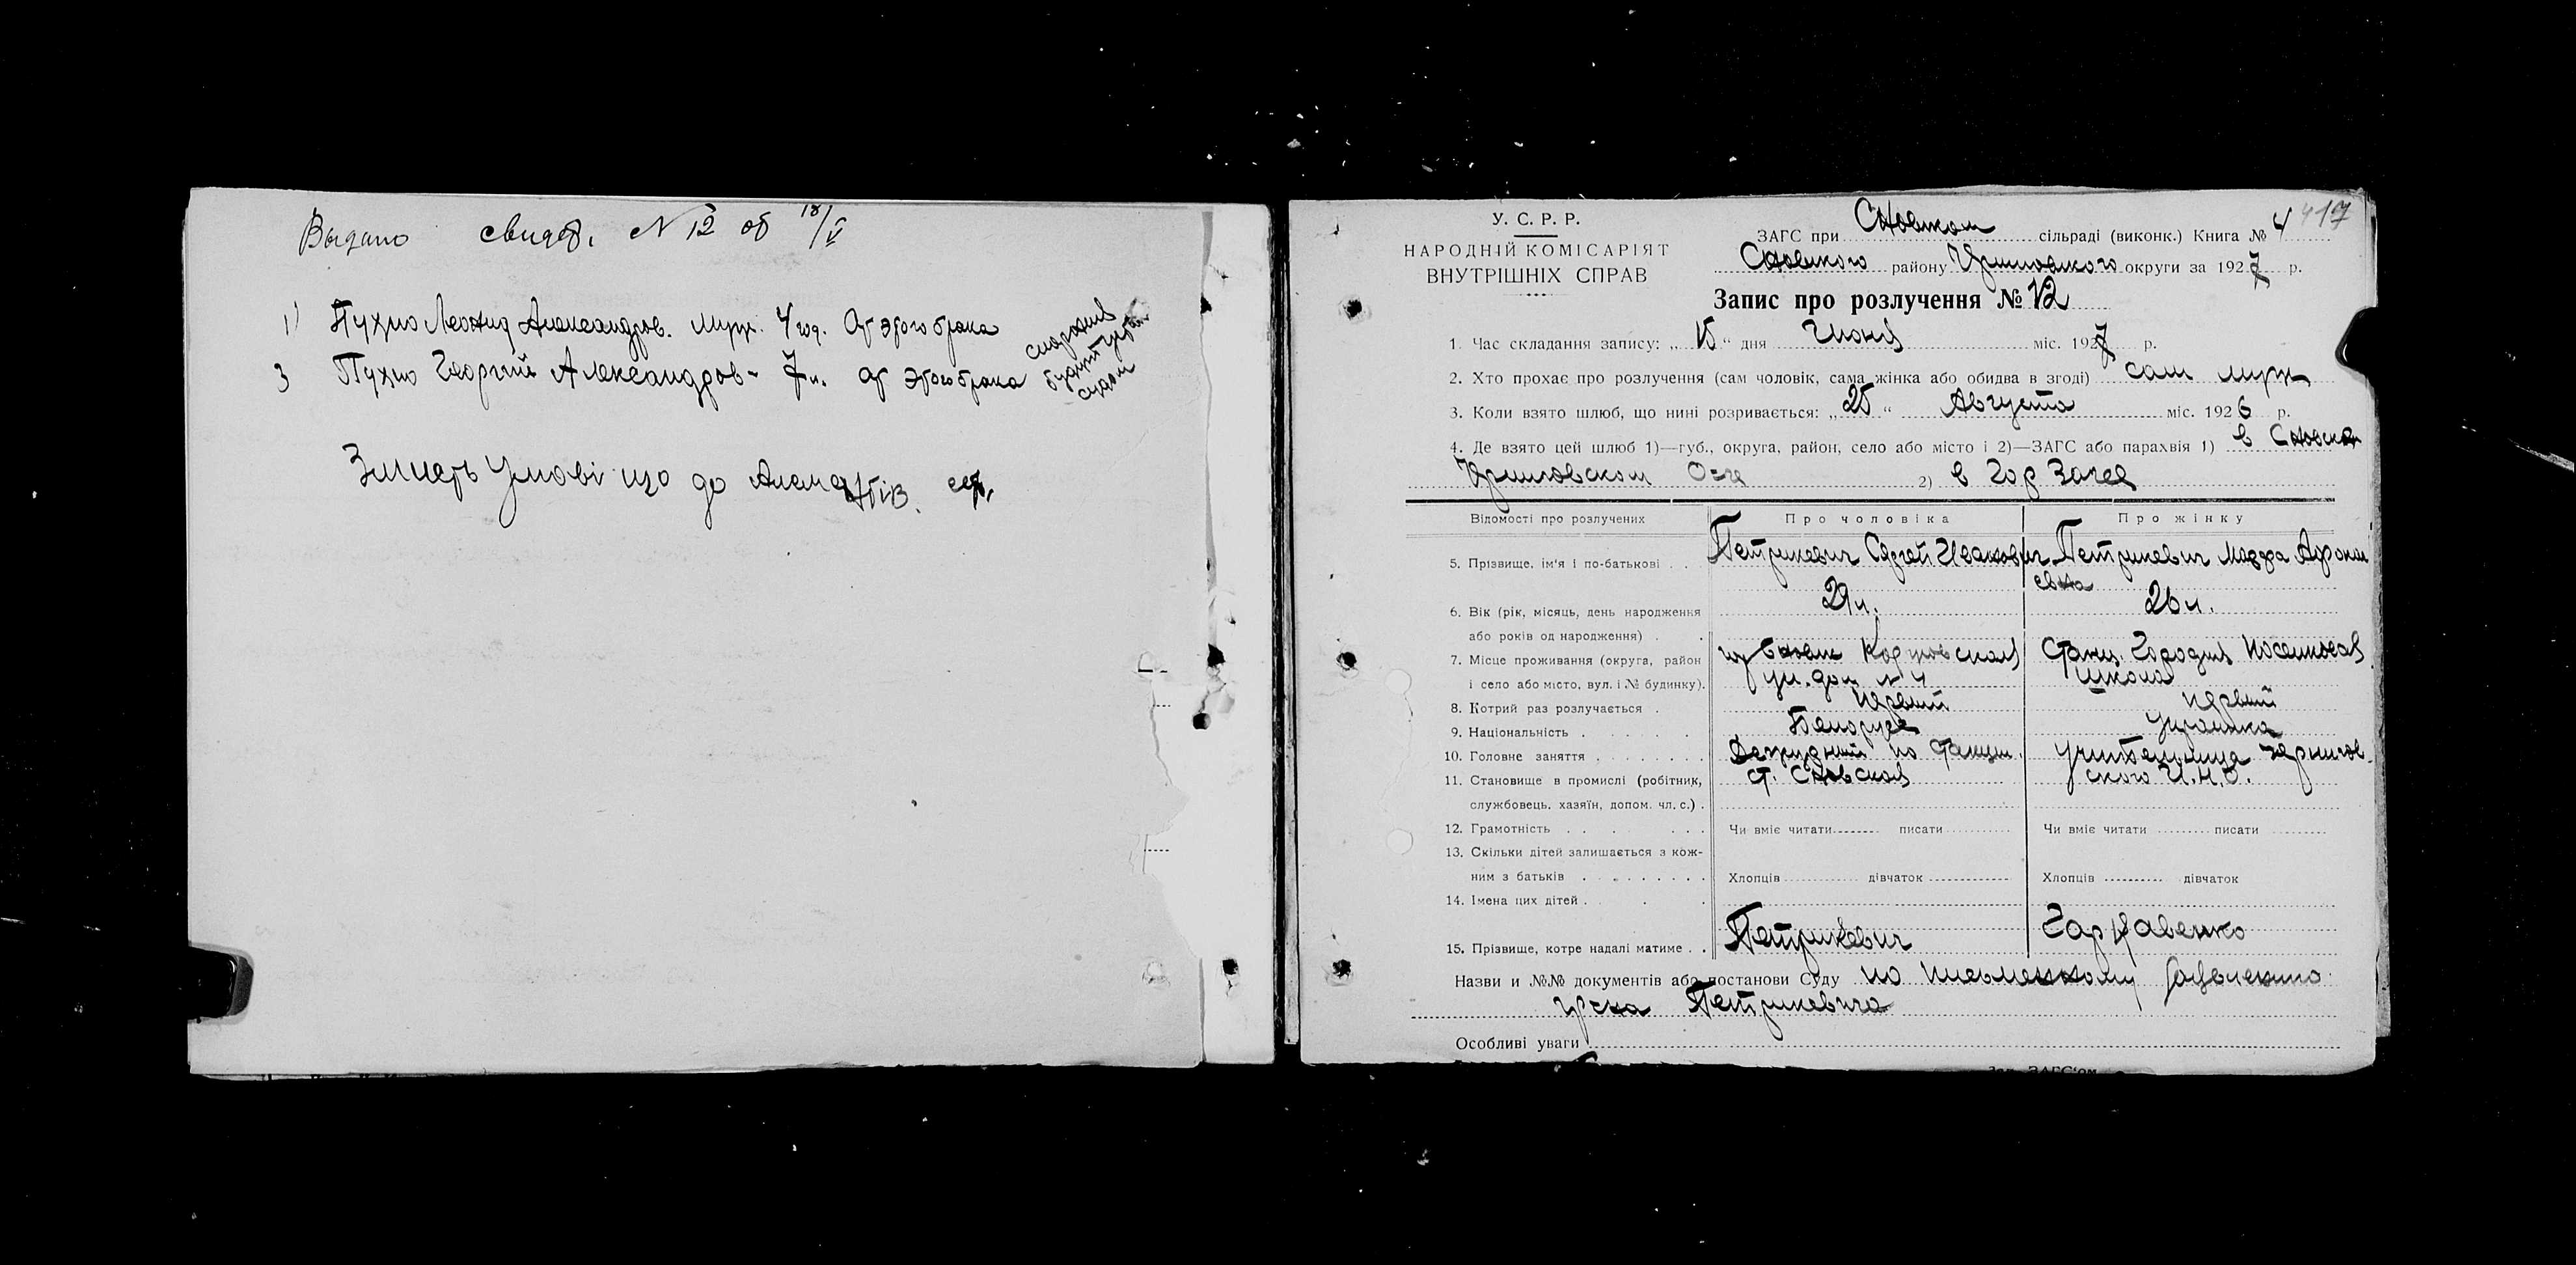 Выдано свидет. N 12 об 18/V
1) Пухно Леонид Александров. муж. 4 год. от этого брака
3 Пухно Георгий Александров- 7 л. от этого брака
судом
Зміст умові що до Алементів.
417
У. С. Р. Р.
НАРОДНІЙ КОМІСАРІЯТ
ВНУТРІШНІХ СПРАВ
ЗАГС при Сновском сільраді (виконк.) Книга № 4
Сновского району округи за 1927 р.
Запис про розлучення № 12
1. Час складання запису: „15" дня Июня міс. 1927 р.
2. Хто прохає про розлучення (сам чоловік, сама жінка або обидва в згоді) сам муж
3. Коли взято шлюб, що нині розривається: „25" Августа міс. 1926 р.
4. Де взято цей шлюб 1)—губ., округа, район, село або місто і 2)—ЗАГС або парахвія 1) в Сновске
Черниговском 2) в Гор Загсе
Відомості про розлучених Про чоловіка Про жінку
5. Прізвище, ім'я і по-батькові . . Петрикевич Сергей Иванович Петрикевич Марфа
евна
6. Вік (рік, місяць, день народження 29 л. 26 л.
або років од народження) . .
7. Місце проживання (округа, район гор Сновск Станц. Городня
і село або місто, вул. і № будинку). ул. дом N 4 школа
8. Котрий раз розлучається . первый первый
9. Національність . . . . . . Белорусс Украинка
10. Головне заняття . . . . . . . Дежурный по станции. Учительница Чернигов-
11. Становище в промислі (робітник, ст. Сновская ского И.Н.О.
службовець, хазяїн, допом. чл. с.) .
12. Грамотність . . . . . . Чи вміє читати писати Чи вміє читати писати
13. Скільки дітей залишається з кож-
ним з батьків . . . . . . . . Хлопців дівчаток Хлопців дівчаток
14. Імена цих дітей . . .
15. Прізвище, котре надалі матиме . . Петрикевич
Назви и №№ документів або постанови Суду по письменному заявлению
гр-на Петрикевича
Особливі уваги
Зав. ЗАГС'ом